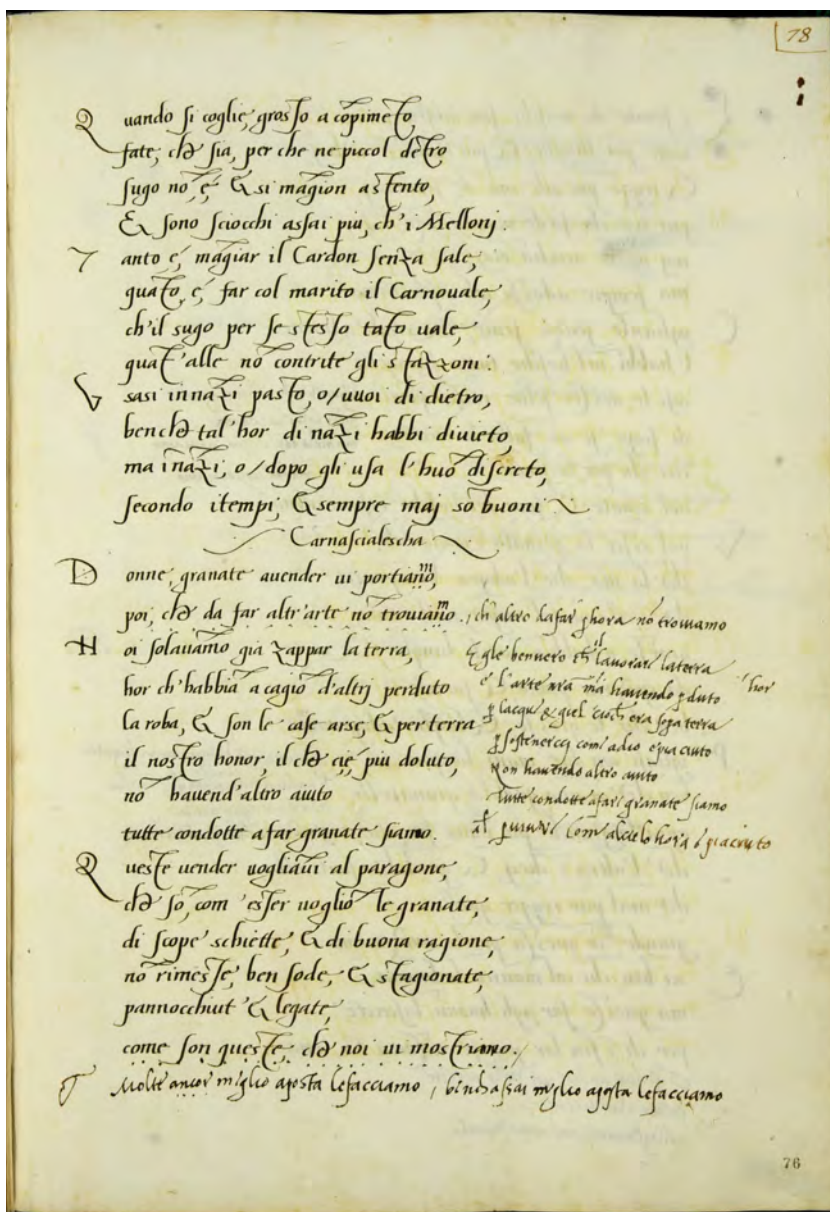 78
Quando si coglie, grosso a cōpimēto,
fate, che sia, per che ne piccol dētro
sugo nō, é, & si māgion a stento,
Et sono sciocchi assai piu, ch'i Mellonj.
Tanto é, māgiar il Cardon senza sale,
quāto, é, far col marito il Carnouale,
ch'il sugo per se stesso tāto uale,
quāt'alle nō contrite gli stāzzoni.
Vsasi innāzi pasto, o/uuoi di dietro,
benche tal'hor di nāzi habbi diuieto,
ma īnāzi, o/dopo gli usa l'huō discreto,
secondo itempi, & sempre maj sō buoni
Carnascialescha
Donne, granate auender ui portiamo,
poi, che da far altr'arte nō trouiamo., ch'altro dafar ꝑhora nō trouiamo
Noi solauāmo gia zappar la terra,
hor ch'habbiā a cagiō d'altrj perduto
la roba, & son le case arse, & per terra
il nostro honor, il che cié piu doluto,
nō hauend'altro aiuto
tutte condotte a far granate siamo.
Egle benuero ch'il lauorare laterra
é l'arte nrā mā hauendo ꝑduto hor
ꝑ lacque & giel cioch era sopa terra
ꝑ sostenerci com adio épiaciuto
Non hauendo altro aiuto
tutte condotte afare granate siamo
com alcielo hora é piaciuto
Queste uender uogliāui al paragone,
che sō, com'esser uogliō le granate,
di scope schiette, & di buona ragione,
nō rimesse, ben sode, & stagionate,
pannocchiut'& legate,
come son queste, che noi ui mostriamo.
Molte ancor meglio aposta lefacciamo / benchassai meglio aposta lefacciamo
76